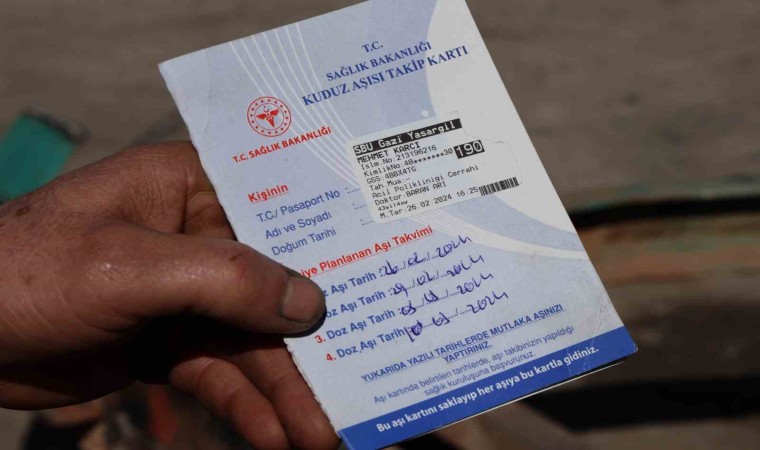 T.C.
SAĞLIK BAKANLIĞI
KUDUZ AŞISI TAKİP KARTI
T.C. SAĞLIK BAKANLIĞI
SBU Gazi Yasargil
MEHMET KARCI
Islm.No.213196216
KimlikNo.40*******30
190
GSS-4BBX4TG
Tah.Mua.-
Acil Poliklinigi Cerrahi
Doktor BARAN ARI
43yil4ay
M.Tar.26.02.2024 16:25
Kişinin
T.C./ Pasaport No :
Adı ve Soyadı :
Doğum Tarihi :
iye Planlanan Aşı Takvimi
Doz Aşı Tarih : 26/02/2024
Doz Aşı Tarihi : 29/02/2024
3. Doz Aşı Tarihi 2024
4. Doz Aşı Tarihi 2024
YUKARIDA YAZILI TARİHLERDE MUTLAKA AŞINIZI
YAPTIRINIZ.
Aşı kartında belirtilen tarihlerde, aşı takibinizin yapıldığı
sağlık kuruluşuna başvurunuz.
Bu aşı kartını saklayıp her aşıya bu kartla gidiniz.